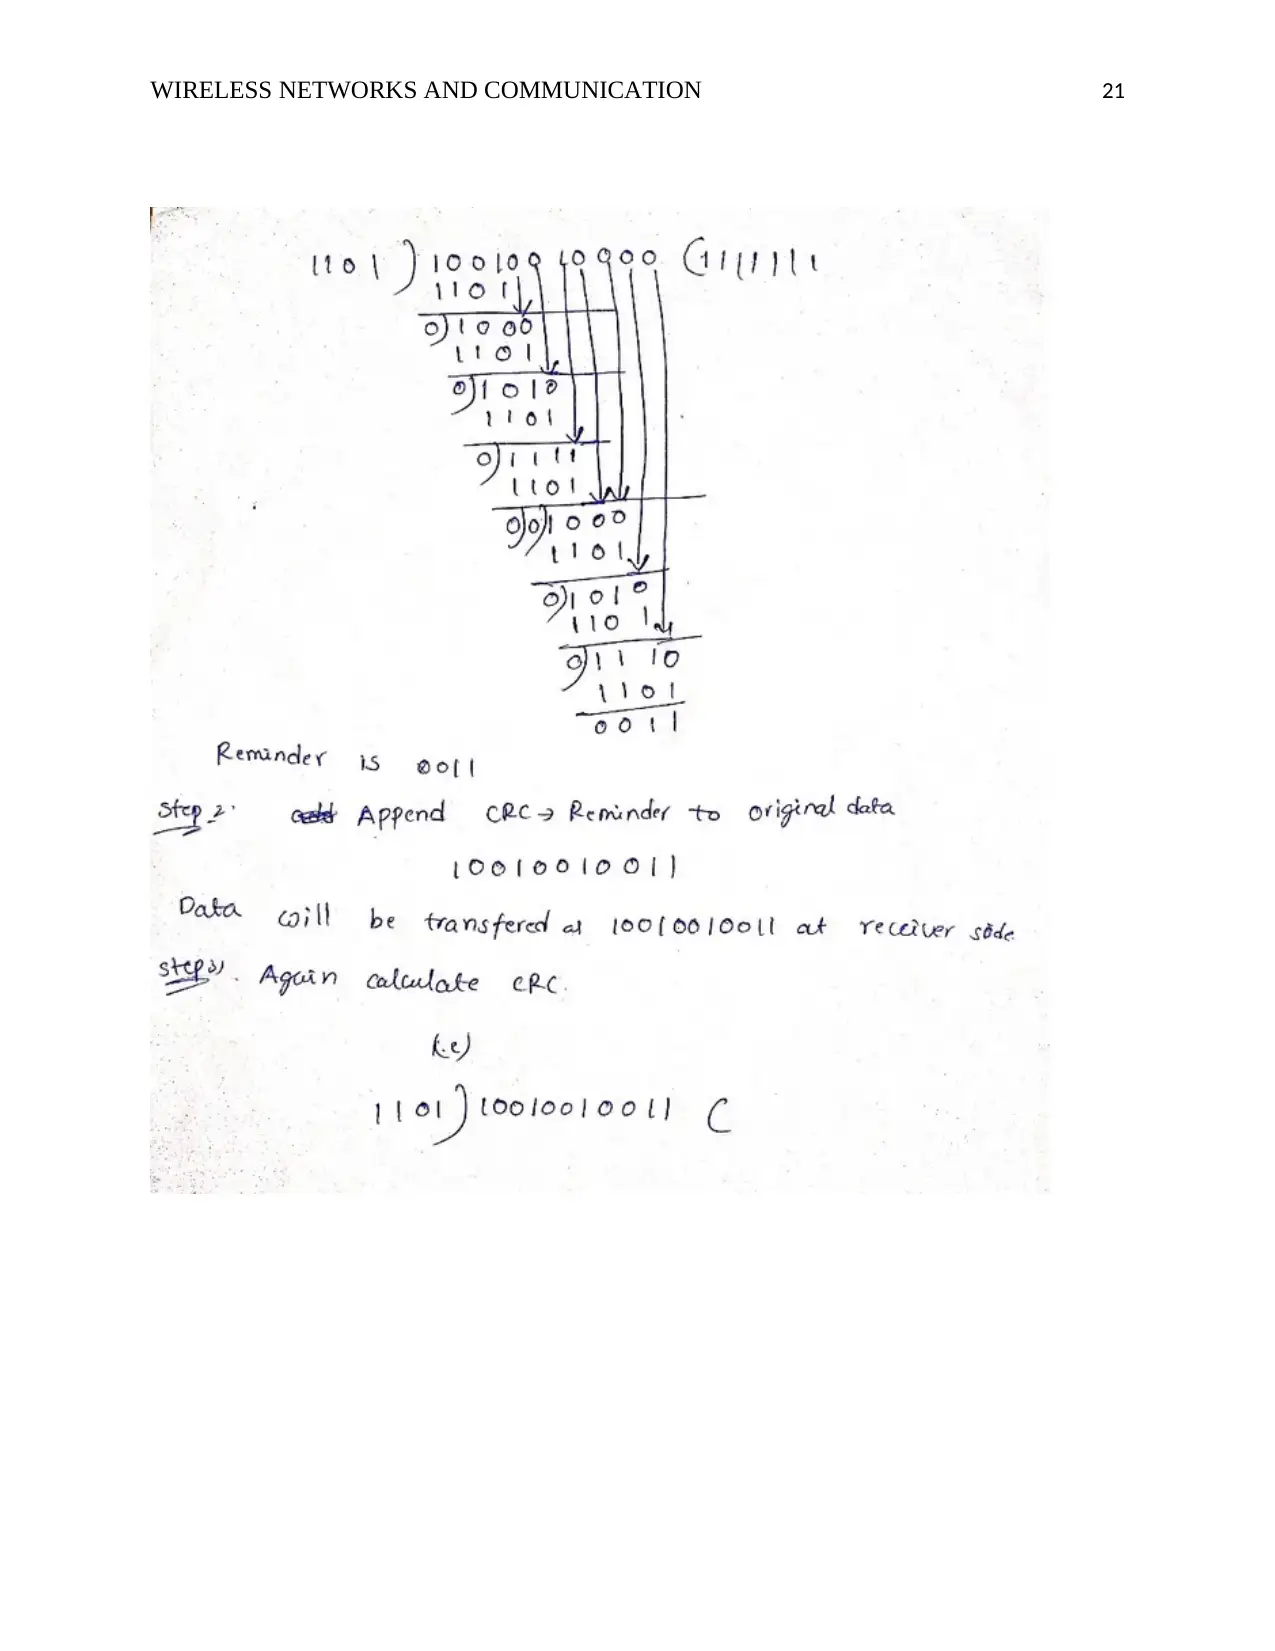 WIRELESS NETWORKS AND COMMUNICATION 21
1101 ) 10010010000 ( 11111111
1101
0) 1000
1101
0) 1010
1101
0) 1111
1101
0)0) 1000
1101
0) 1010
1101
0) 1110
1101
0011
Reminder is 0011
Step 2: Append CRC → Reminder to original data
10010010011
Data will be transfered as 10010010011 at receiver side
Step 3) . Again calculate CRC.
(i.e)
1101 ) 10010010011 (